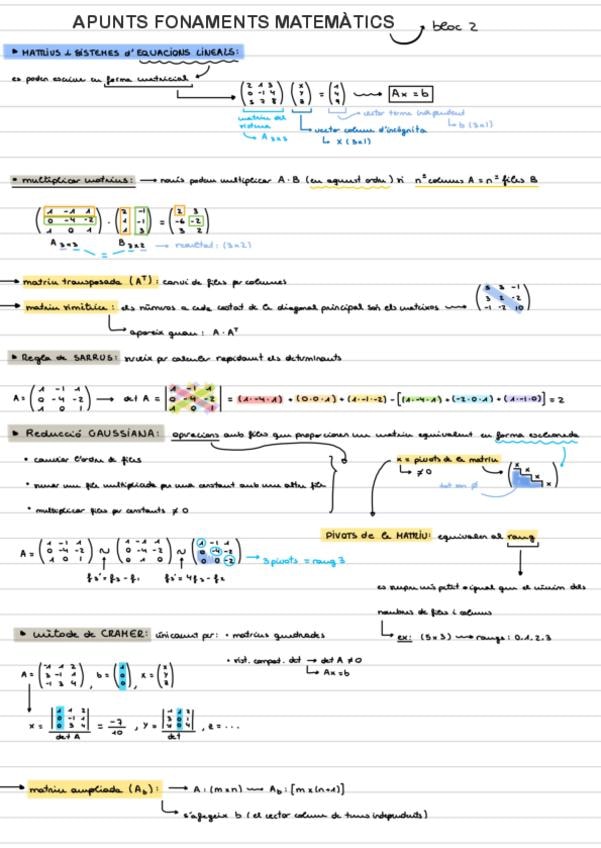 APUNTS FONAMENTS MATEMÀTICS
bloc 2
▸ MATRIUS i SISTEMES d'EQUACIONS LINEALS:
es poden escriure en forma matricial
Ax = b
matriu del sistema
A 3x3
vector columna d'incògnita
x (3x1)
vector terme independent
b (3x1)
• multiplicar matrius: → només podem multiplicar A·B (en aquest ordre) si nº columnes A = nº files B
( 1 -1 1 / 0 -4 -2 / 1 0 1 ) · ( 2 -1 / 1 -1 / 1 3 ) = ( 2 3 / -6 -2 / 3 2 )
A 3x3 = B 3x2 → resultat: (3x2)
→ matriu transposada (Aᵀ): canvi de files per columnes
→ matriu simètrica: els números a cada costat de la diagonal principal són els mateixos
apareix quan: A·Aᵀ
▸ Regla de SARRUS: serveix per calcular rapidament els determinants
A = ( 1 -1 1 / 0 -4 -2 / 1 0 1 ) → det A = | 1 -1 1 / 0 -4 -2 / 1 0 1 | = (1·-4·1) + (0·0·1) + (1·-1·-2) - [(1·-4·1) + (-2·0·1) + (1·-1·0)] = 2
▸ Reducció GAUSSIANA: operacions amb files que proporcionen una matriu equivalent en forma esclonada
• canviar l'ordre de files
x = pivots de la matriu
↳ ≠0
tot són 0
• sumar una fila multiplicada per una constant amb una altre fila
• multiplicar files per constants ≠ 0
PIVOTS de la MATRIU: equivalen al rang
A = ( 1 -1 1 / 0 -4 -2 / 1 0 1 ) ~ ( 1 -1 1 / 0 -4 -2 / 0 1 0 ) ~ ( 1 -1 1 / 0 -4 -2 / 0 0 -2 ) → 3 pivots = rang 3
f₃' = f₃ - f₁
f₃' = 4f₃ - f₂
es sempre més petit o igual que el mínim dels
nombres de files i columnes
ex: (5x3) → rangs: 0,1,2,3
▸ mètode de CRAMER: únicament per: • matrius quadrades
• sist. compat. det → det A ≠ 0
↳ Ax=b
A = ( 1 1 2 / 3 -1 1 / -1 3 4 ), b = ( 1 / 0 / 0 ), x = ( x / y / z )
x = | 1 1 2 / 0 -1 1 / 0 3 4 | / det A = -7/10, y = / det, z = ...
→ matriu ampliada (A_b): → A: (m×n) → A_b: [m×(n+1)]
s'afegeix b (el vector columna de termes independents)